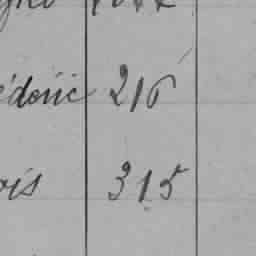 édéric 216
ois 315